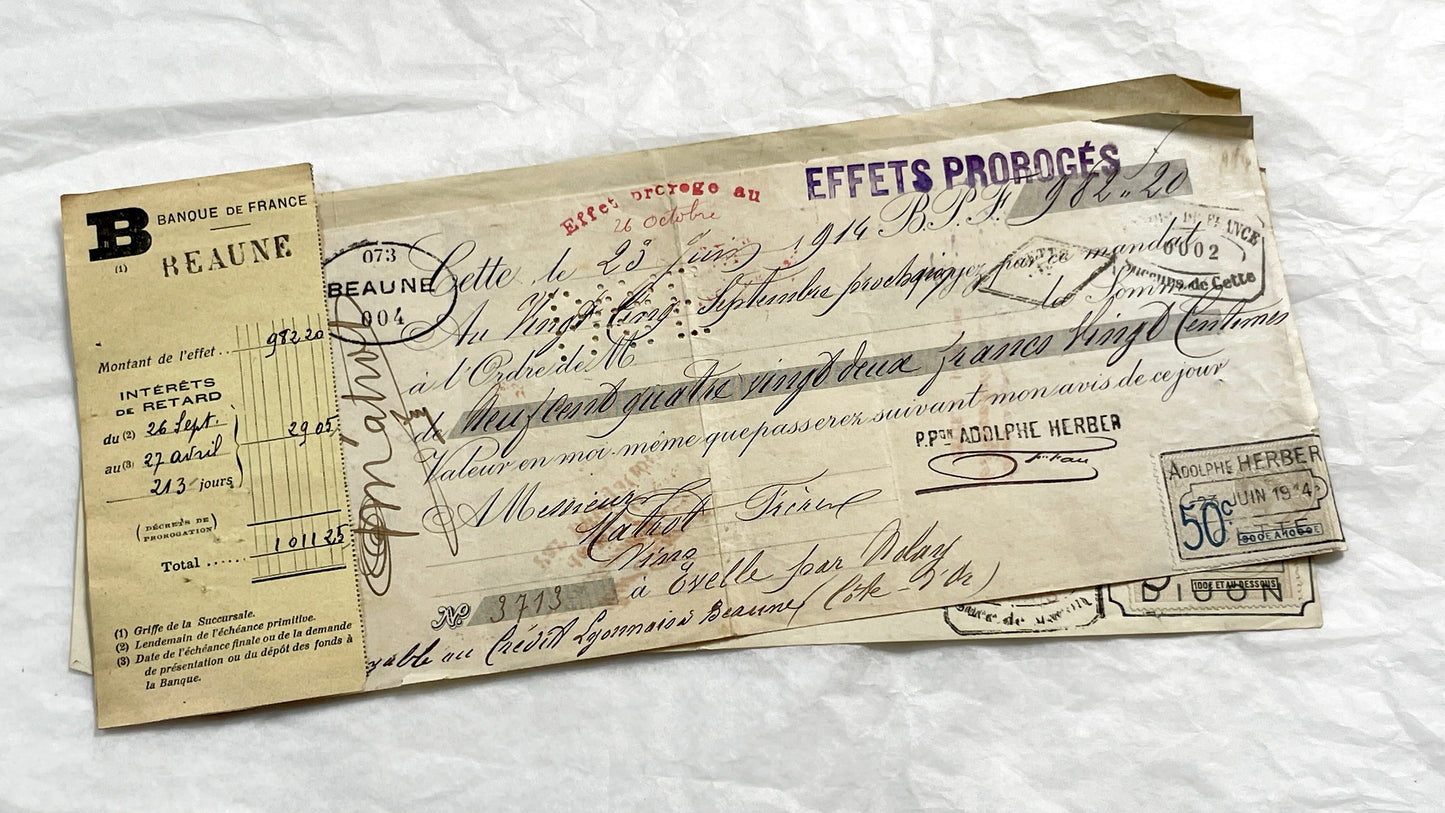 B BANQUE DE FRANCE
(1) BEAUNE
Montant de l'effet .. 982 20
INTÉRÊTS
DE RETARD
du (2) 26 Sept.
au (3) 27 avril
29 05
213 jours
(DÉCRETS DE
PROROGATION)
Total ...... 1011 25
(1) Griffe de la Succursale.
(2) Lendemain de l'échéance primitive.
(3) Date de l'échéance finale ou de la demande
de présentation ou du dépôt des fonds à
la Banque.
EFFETS PROROGÉS
Effet proroge au
26 octobre
073
BEAUNE
004
Cette, le 23 Juin 1914 B.P.F. 982 " 20
DE FRANCE
0002
de Cette
Au Vingt Cinq Septembre prochain payez par ce mandat
à l'Ordre de M
la Somme
de Neuf cent quatre vingt deux francs Vingt Centimes
Valeur en moi-même que passerez suivant mon avis de ce jour
P.PON ADOLPHE HERBER
A Messieurs
Frères
Vins
à Evelle par Nolay
(Côte-d'Or)
No 3713
Payable au Crédit Lyonnais Beaune
ADOLPHE HERBER
23 JUIN 1914
50c
CETTE
DIJON
100F ET AU DESSOUS